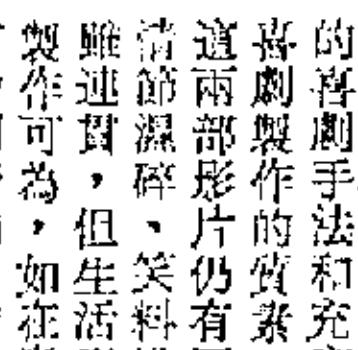 的喜劇手法和充
喜劇製作的質素
這兩部形片仍有
情節濕碎、笑料
雖連貫，但生活
製作可為，如在